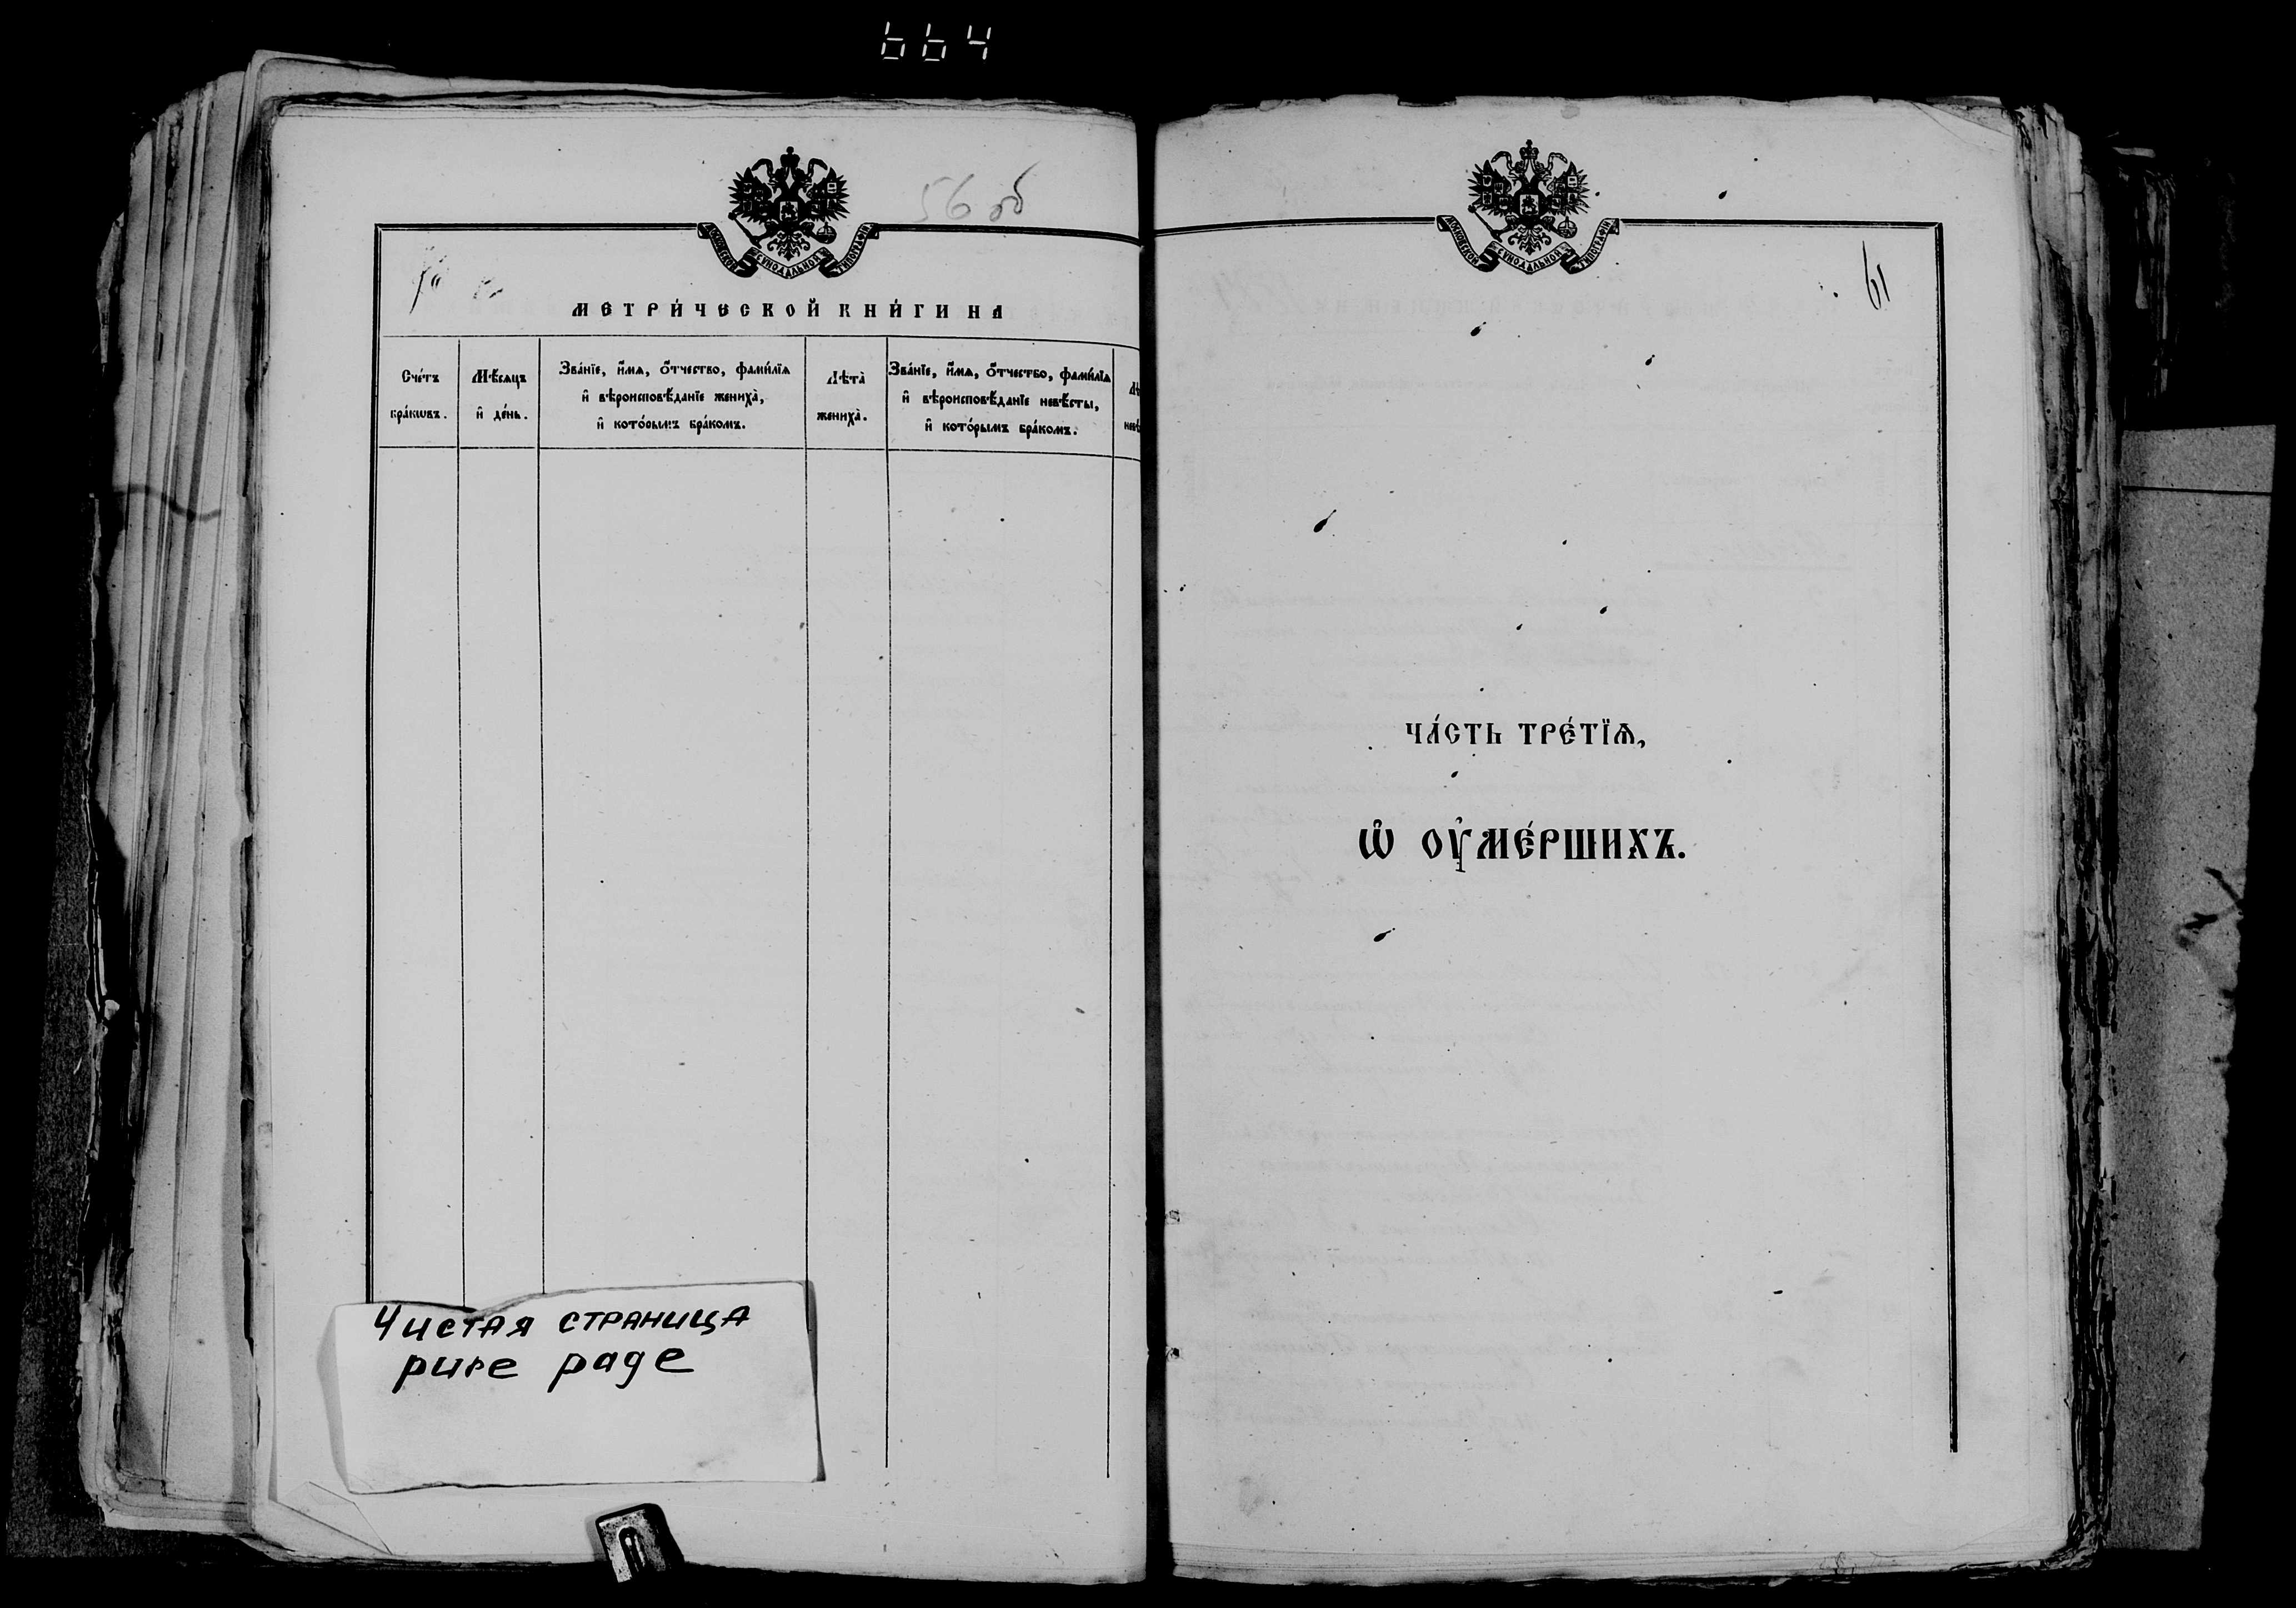 664
56 об
МОСКОВСКОЙ СѴНОДАЛЬНОЙ ТИПОГРАФІИ
МЕТРИ́ЧЕСКОЙ КНИ́ГИ НА
Сче́тъ бра́кѡвъ.
Мѣ́сяцъ и҆ де́нь.
Зва́нїе, и҆́мѧ, о҆́тчество, фами́лїѧ
и҆ вѣроисповѣ́данїе жениха̀,
и҆ кото́рымъ бра́комъ.
Лѣта̀
жениха̀.
Зва́нїе, и҆́мѧ, о҆́тчество, фами́лїѧ
и҆ вѣроисповѣ́данїе невѣ́сты,
и҆ кото́рымъ бра́комъ.
Лѣ
невѣ
Чистая страница
pure page
МОСКОВСКОЙ СѴНОДАЛЬНОЙ ТИПОГРАФІИ
61
ЧА́СТЬ ТРЕ́ТЇѦ,
Ѡ҆ ОУ҆МЕ́РШИХЪ.